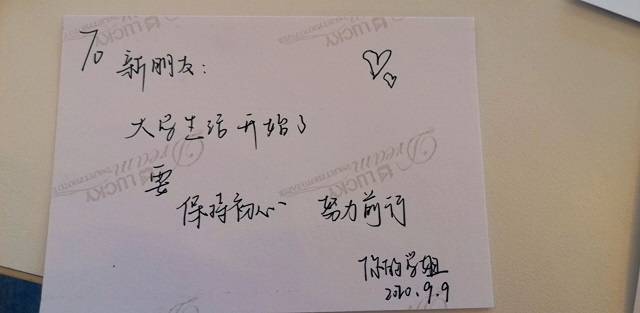 To
新朋友:
大学生活开始了
要
保持初心 努力前行
你的学姐
2020.9.9
Dream
LUCKY
Dream
LUCKY